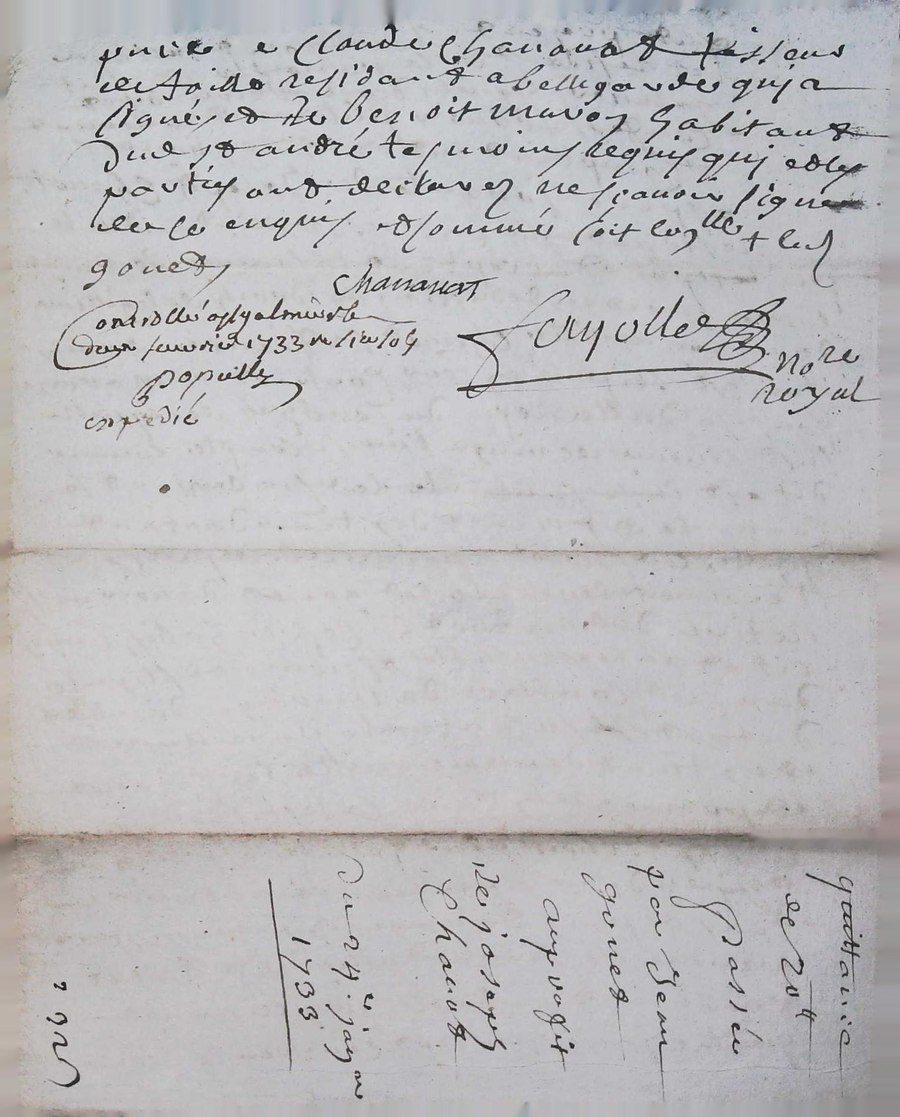 Claude Chananat tisseur
de toille residant a bellegarde qui a
signé et de Benoit habitant
dud st andré tesmoins requis qui et les
parties ont declarez ne sçavoir signer
de ce enquis et sommé soit
gonet
Chananat
Controllé a st galmier le
deux feuvrier 1733
expedié
fayolle
nore
royal
quittance
de 20tt
Passée
par Jean
gonet
au profit
de joseph
Chanot
du 24e janr
1733